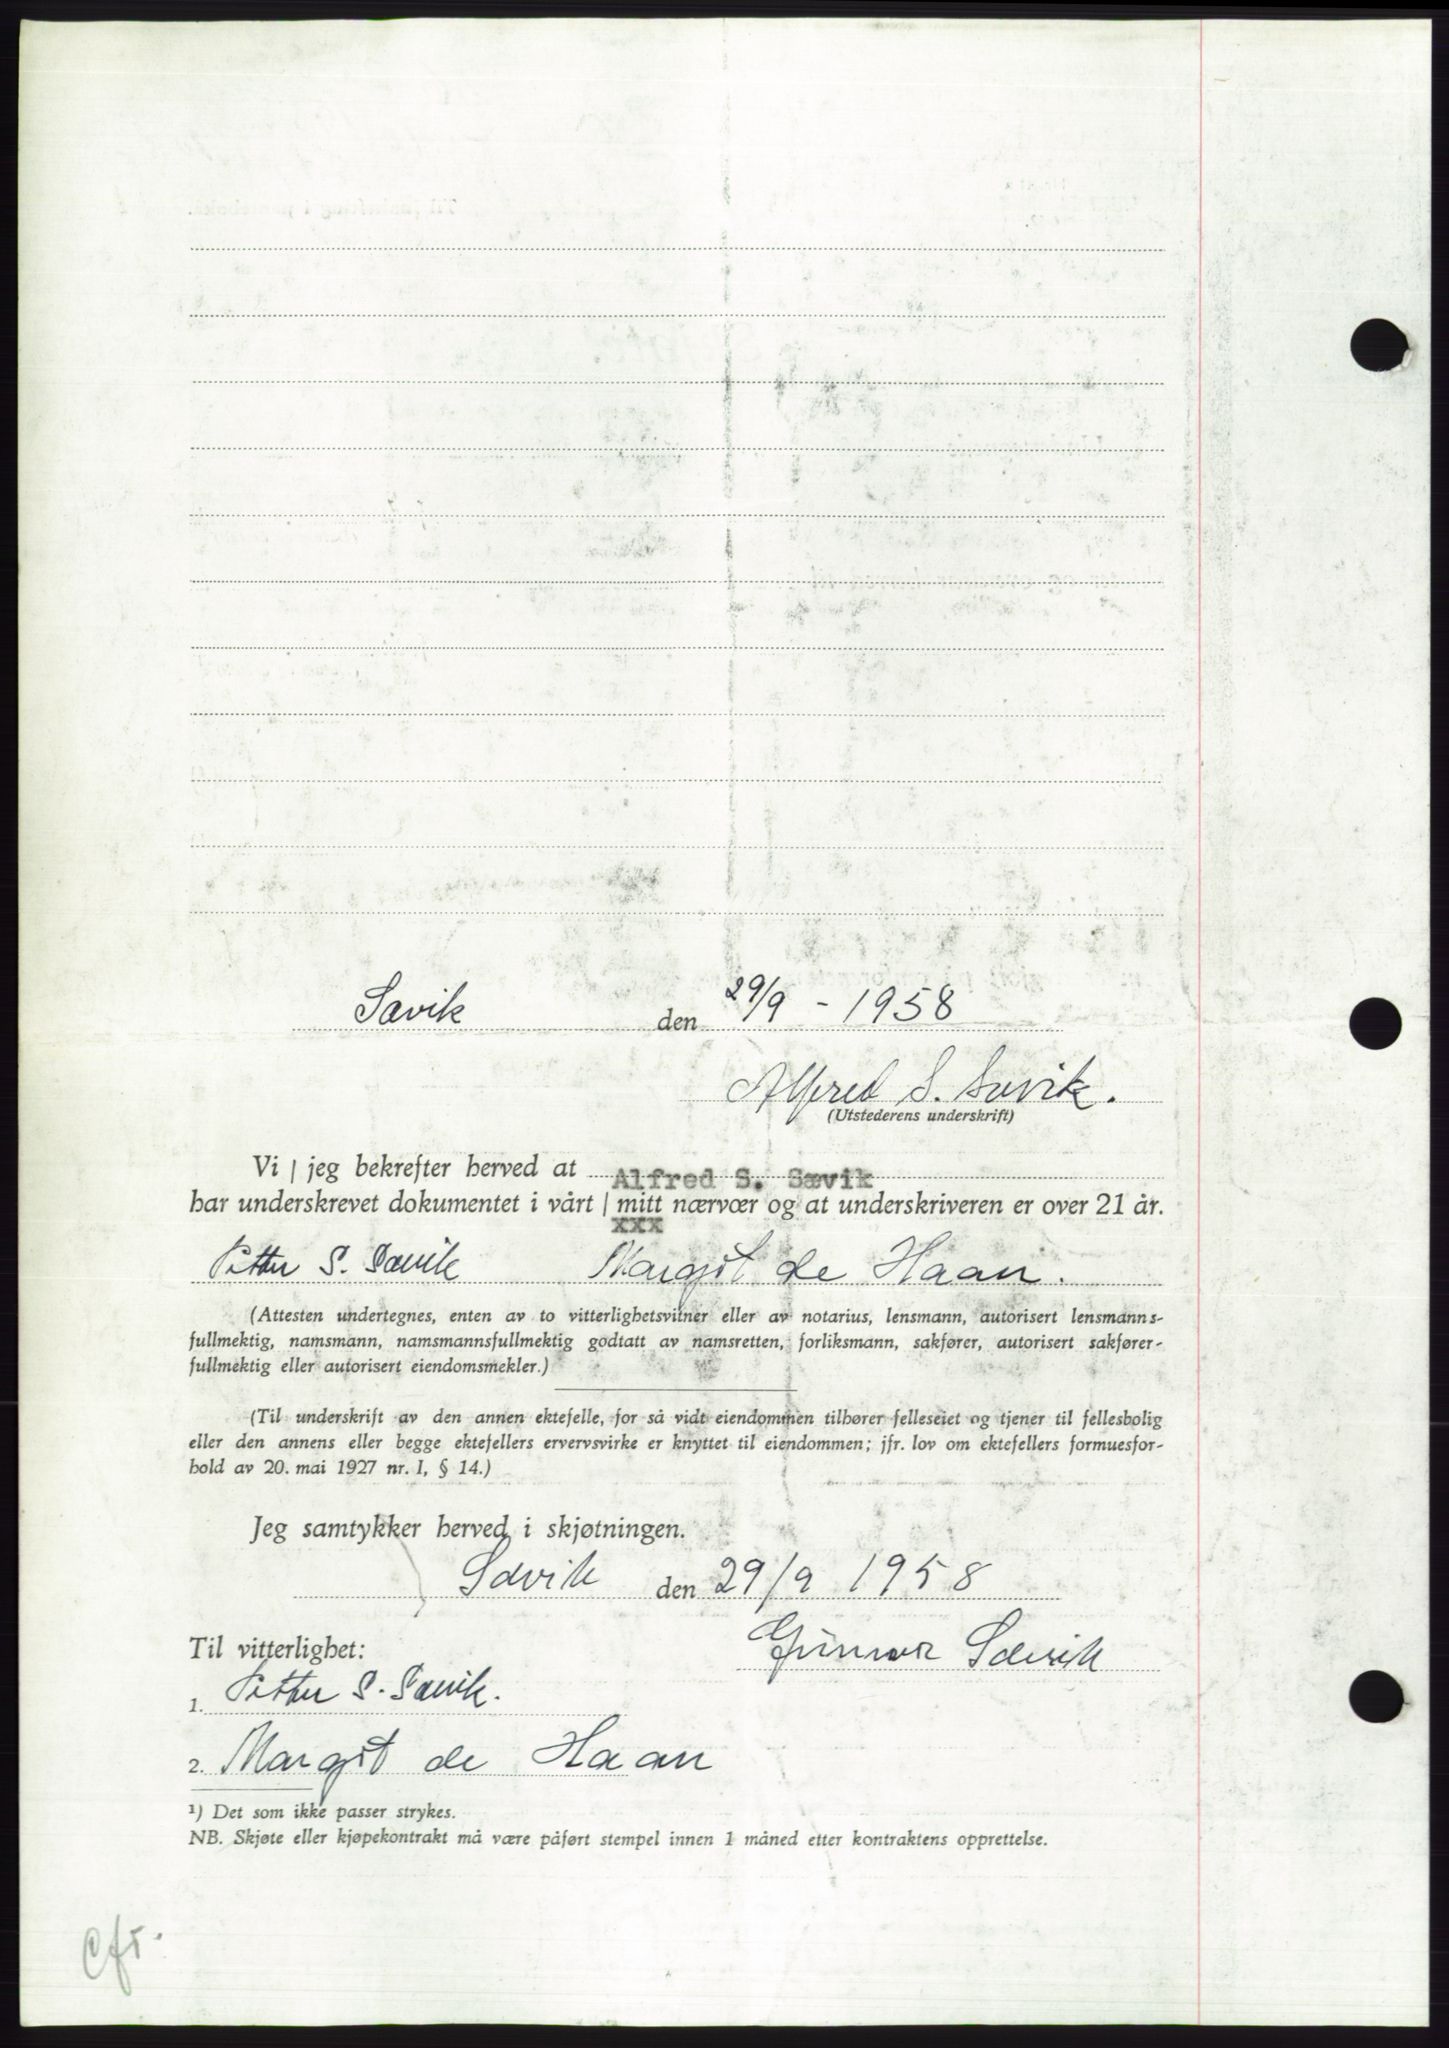 Sævik den 29/9 - 1958
Alfred S. Sævik.
(Utstederens underskrift)
Vi / jeg bekrefter herved at Alfred S. Sævik
har underskrevet dokumentet i vårt / mitt nærvær og at underskriveren er over 21 år.
xxx
Petter S. Sævik Margit de Haan.
(Attesten undertegnes, enten av to vitterlighetsvitner eller av notarius, lensmann, autorisert lensmanns-
fullmektig, namsmann, namsmannsfullmektig godtatt av namsretten, forliksmann, sakfører, autorisert sakfører-
fullmektig eller autorisert eiendomsmekler.)
(Til underskrift av den annen ektefelle, for så vidt eiendommen tilhører felleseiet og tjener til fellesbolig
eller den annens eller begge ektefellers ervervsvirke er knyttet til eiendommen; jfr. lov om ektefellers formuesfor-
hold av 20. mai 1927 nr. 1, § 14.)
Jeg samtykker herved i skjøtningen.
Sævik den 29/9 1958
Gunnvor Sævik
Til vitterlighet:
1. Petter S. Sævik.
2. Margit de Haan
¹) Det som ikke passer strykes.
NB. Skjøte eller kjøpekontrakt må være påført stempel innen 1 måned etter kontraktens opprettelse.